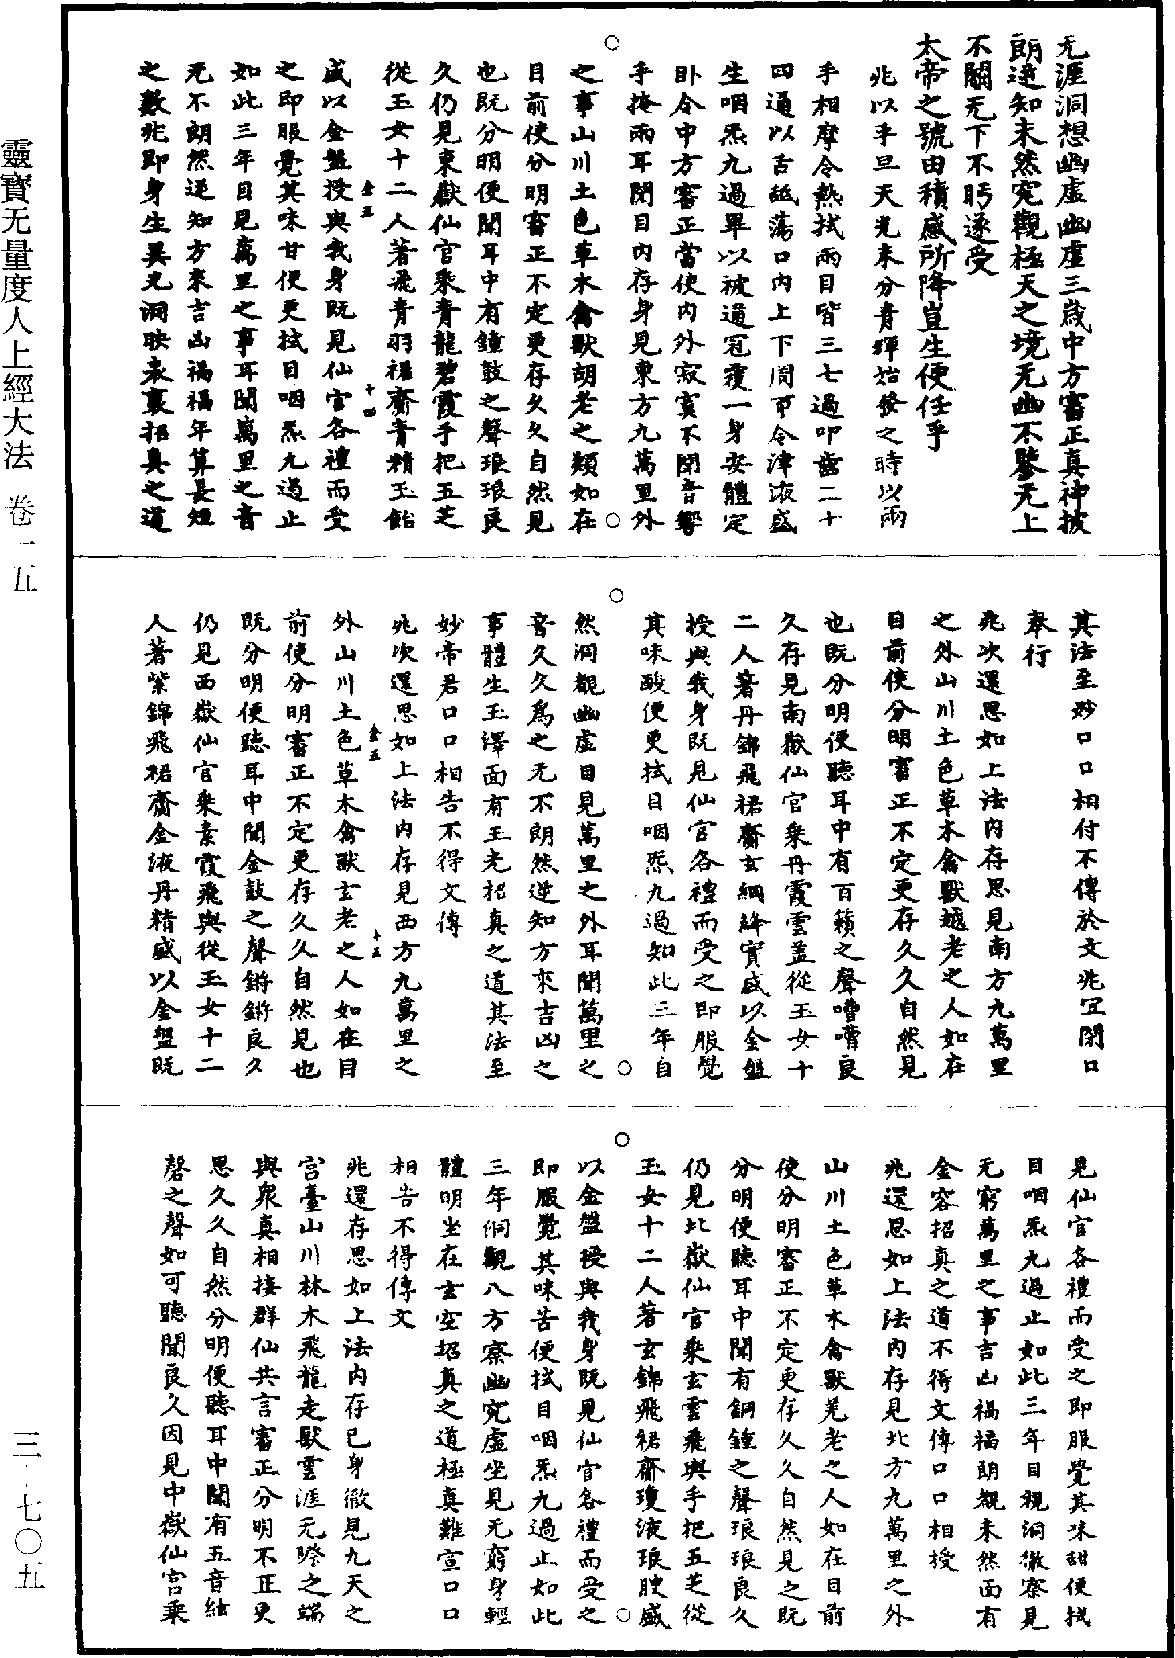 无涯洞想幽虛幽虛三歲中方審正真神披
朗逆知未然究觀極天之境无幽不鑒无上
不關无下不眄遂受
太帝之號由積感所降豈生便任乎
兆以平旦天光未分青暉始發之時以兩
手相摩令熱拭兩目眥三七過叩齒二十
四通以舌舐蕩口內上下周帀令津液盛
生咽炁九過畢以被通冠覆一身安體定
卧令中方審正當使內外寂寞不聞音響
手掩兩耳閉目內存身見東方九萬里外
之事山川土色草木禽獸胡老之類如在
目前使分明審正不定更存久久自然見
也既分明便聞耳中有鐘鼓之聲琅琅良
久仍見東嶽仙官乘青龍碧霞手把五芝
從玉女十二人著飛青羽裙齎青精玉飴
盛以金盤授與我身既見仙官各禮而受
之即服覺其味甘便更拭目咽炁九過止
如此三年目見萬里之事耳聞萬里之音
无不朗然逆知方來吉凶禍福年算長短
之數兆即身生異光洞映表裏招真之道
其法至妙口口相付不傳於文兆宜閉口
奉行
兆次還思如上法內存思見南方九萬里
之外山川土色草木禽獸越老之人如在
目前使分明審正不定更存久久自然見
也既分明便聽耳中有百籟之聲嘈嘈良
久存見南嶽仙官乘丹霞雲蓋從玉女十
二人著丹錦飛裙齎玄網絳實盛以金盤
授與我身既見仙官各禮而受之即服覺
其味酸便更拭目咽炁九過知此三年自
然洞觀幽虛目見萬里之外耳聞萬里之
音久久為之无不朗然逆知方來吉凶之
事體生玉澤面有玉光招真之道其法至
妙帝君口口相告不得文傳
兆次還思如上法內存見西方九萬里之
外山川土色草木禽獸玄老之人如在目
前使分明審正不定更存久久自然見也
既分明便聽耳中聞金鼓之聲鏘鏘良久
仍見西嶽仙官乘素霞飛輿從玉女十二
人著紫錦飛裙齎金液丹精盛以金盤既
見仙官各禮而受之即服覺其味甜便拭
目咽炁九過止如此三年目視洞徹察見
无窮萬里之事吉凶禍福朗覩未然面有
金容招真之道不得文傳口口相授
兆還思如上法內存見北方九萬里之外
山川土色草木禽獸羌老之人如在目前
使分明審正不定更存久久自然見之既
分明便聽耳中聞有銅鍾之聲琅琅良久
仍見北嶽仙官乘玄雲飛輿手把五芝從
玉女十二人著玄錦飛裙齎瓊液琅膄盛
以金盤授與我身既見仙官各禮而受之
即服覺其味苦便拭目咽炁九過止如此
三年洞觀八方察幽究虛坐見无窮身輕
體明坐在玄空招真之道極真難宣口口
相告不得傳文
兆還存思如上法內存己身徹見九天之
宮臺山川林木飛龍走獸雲涯无際之端
與衆真相接群仙共言審正分明不正更
思久久自然分明便聽耳中聞有五音絃
磬之聲如可聽聞良久因見中嶽仙官乘
靈寶无量度人上經大法 卷一五
三·七〇五